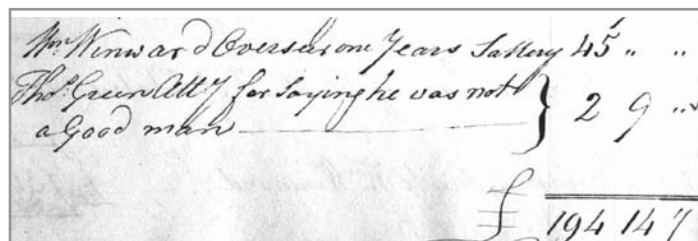 Wm. Winward Overseer one Years Sallery 45 " "
Thos. Green Atty for Saying he was not } 2 9 "
a Good man
£ 194 14 7